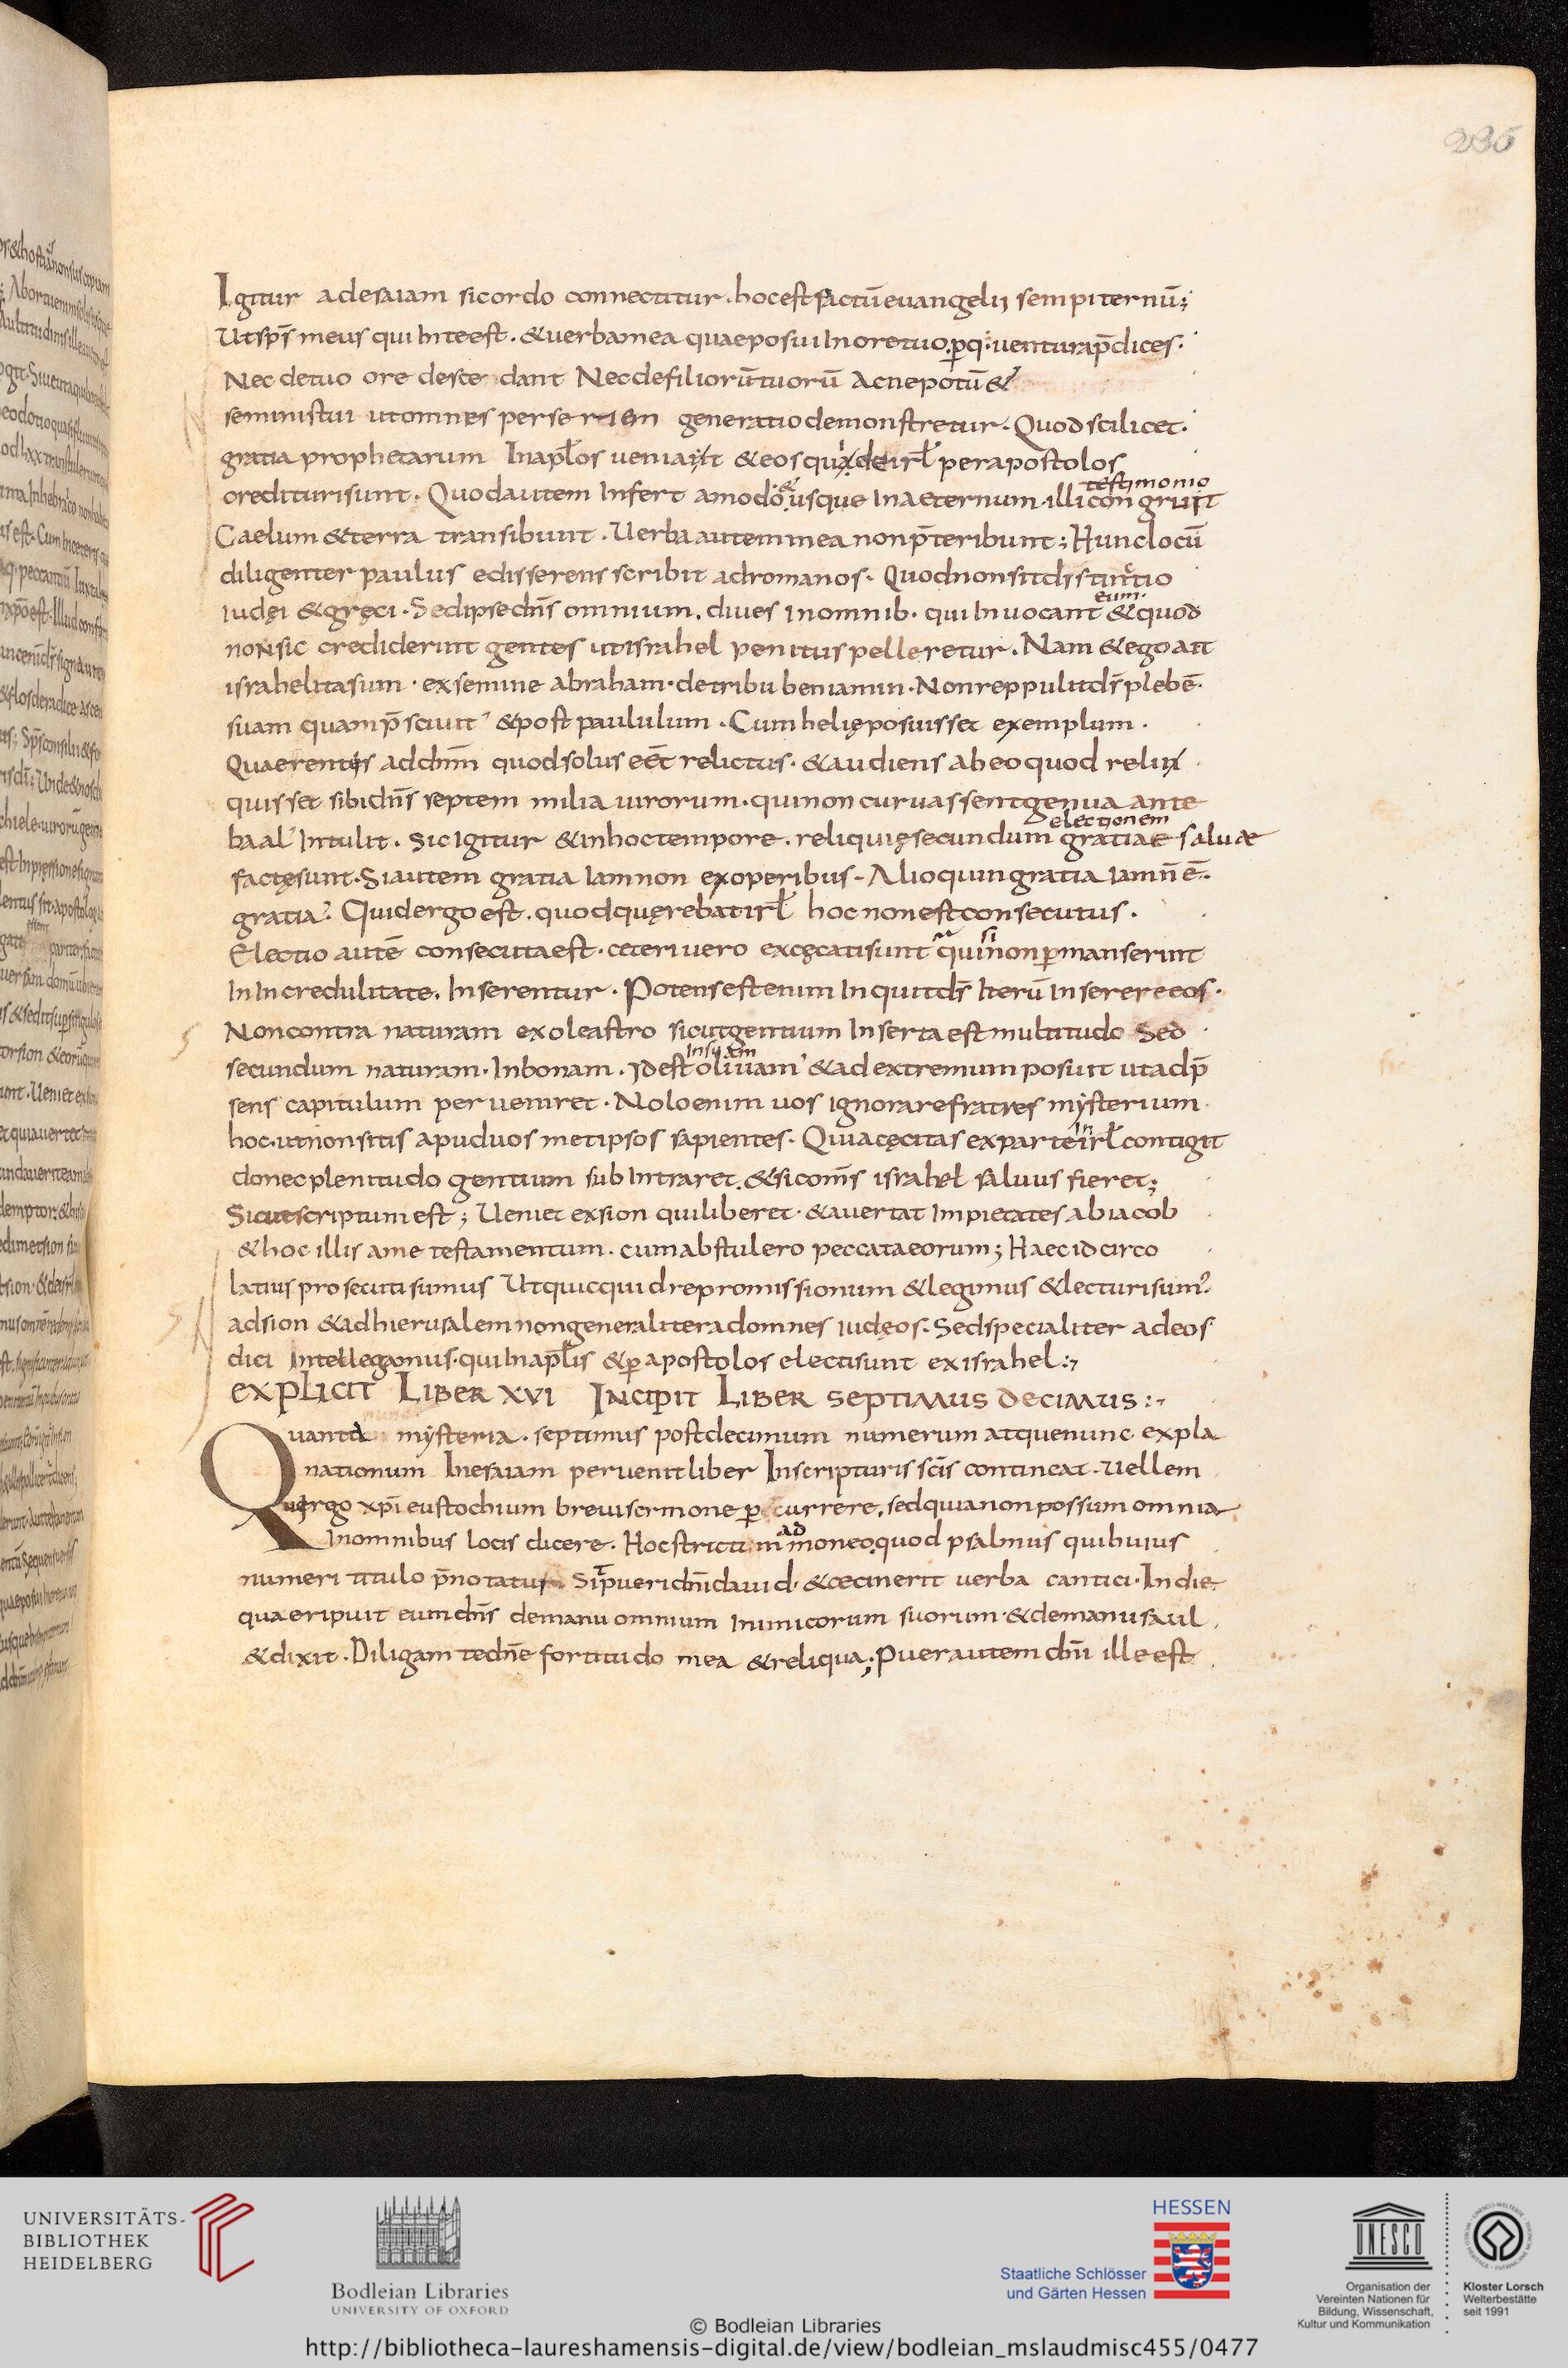 235
Igitur adesaiam sicordo connectitur. hocest pactū euangelij sempiternū;
Utsps̄ meus qui Inteest. &uerbamea quaeposui Inoretuo. ꝑq· uentura p̄dices.
Nec detuo ore desce dant Necdefiliorūtuorū Acnepotū &
seministui utomnes per se riem generatio demonstretur. Quod scilicet.
gratia prophetarum Inapl̄os ueniat &eos qui de irl̄ perapostolos
credituri sunt. Quodautem Infert amodo & usque In aeternum. illi testimonio congruit
Caelum &terra transibunt. Uerba autem mea nonp̄teribunt; Hunc locū
diligenter paulus edisserens scribit adromanos. Quodnonsitdistinctio
iudęi &gręci. Sedipse dn̄s omnium. diues inomnib. qui Inuocant eum. &quod
nonsic crediderint gentes utisrahel penitus pelleretur. Nam &ego ait
israhelitasum. exsemine abraham. detribu beniamin. Nonreppulitds̄ plebē.
suam quamp̄sciuit &post paululum. Cum helię posuisset exemplum.
Quaerentis addn̄m quodsolus eēt relictus. &audiens abeo quod reli
quisset sibi dn̄s septem milia uirorum. quinon curuassent genua ante
baal Intulit. Sic Igitur &inhoctempore. reliquię secundum electionem gratiae saluae
factęsunt. Siautem gratia Iamnon exoperibus. Alioquin gratia Iamn̄ ē.
gratia. Quidergo est. quod quęrebat irl̄ hoc nonest consecutus.
Electio autē consecuta est. ceteri uero excęcati sunt qui si non ꝑmanserint
In Incredulitate. Inserentur. Potens est enim Inquit ds̄ Iterū Inserere eos.
Noncontra naturam exoleastro sicut gentium Inserta est multitudo Sed
secundum naturam. Inbonam. Idest insuam oliuam &ad extremum posuit utadp̄
sens capitulum perueniret. Nolo enim uos ignorare fratres mysterium
hoc. utnonsitis apuduos metipsos sapientes. Quia cęcitas exparte in irl̄ contigit
donec plenitudo gentium subIntraret. &sicom̄s israhel saluus fieret;
Sicut scriptum est; Ueniet exsion quiliberet. &auertat Impietates abiacob
&hoc illis ame testamentum. cum abstulero peccata eorum; Haec idcirco
latius prosecuti sumus Utquicquid repromissionum &legimus &lecturi sum'
adsion &adhierusalem nongeneraliter adomnes iudęos. Sed specialiter adeos
dici Intellegamus. qui Inapl̄is &ꝑ apostolos electi sunt exisrahel:
EXPLICIT LIBER XVI INCIPIT LIBER SEPTIMUS DECIMUS:
Quanta mysteria. septimus postdecimum numerum atquenunc expla
nationum Inesaiam peruenit liber Inscripturis sc̄is contineat. uellem
ergo xp̄i eustochium breui sermone ꝑ currere, sed quia non possum omnia
Inomnibus locis dicere. Hoc strictim admoneo quod psalmus qui huius
numeri titulo p̄notatur pueri dn̄i dauid. &cecinerit uerba cantici. Indie
qua eripuit eum dn̄s demanu omnium Inimicorum suorum. &demanu saul
&dixit. Diligam te dn̄e fortitudo mea &reliqua; Puer autem dn̄i ille est
UNIVERSITÄTS-
BIBLIOTHEK
HEIDELBERG
Bodleian Libraries
UNIVERSITY OF OXFORD
HESSEN
Staatliche Schlösser
und Gärten Hessen
UNESCO
Organisation der
Vereinten Nationen für
Bildung, Wissenschaft,
Kultur und Kommunikation
Kloster Lorsch
Welterbestätte
seit 1991
© Bodleian Libraries
http://bibliotheca-laureshamensis-digital.de/view/bodleian_mslaudmisc455/0477